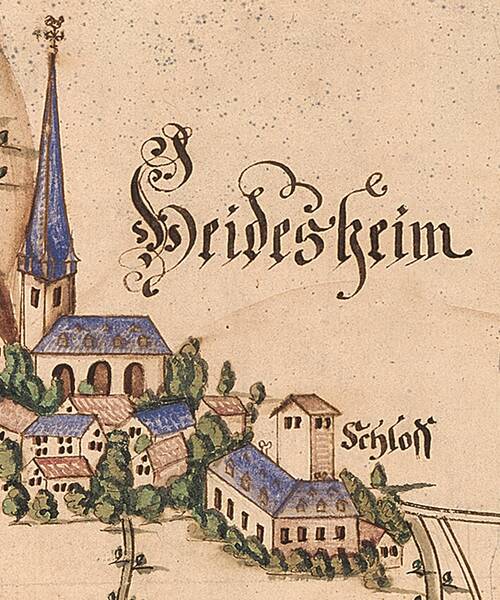 Heidesheim
Schloss